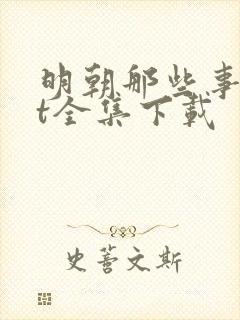 明朝那些事
t全集下载
史蒈文斯